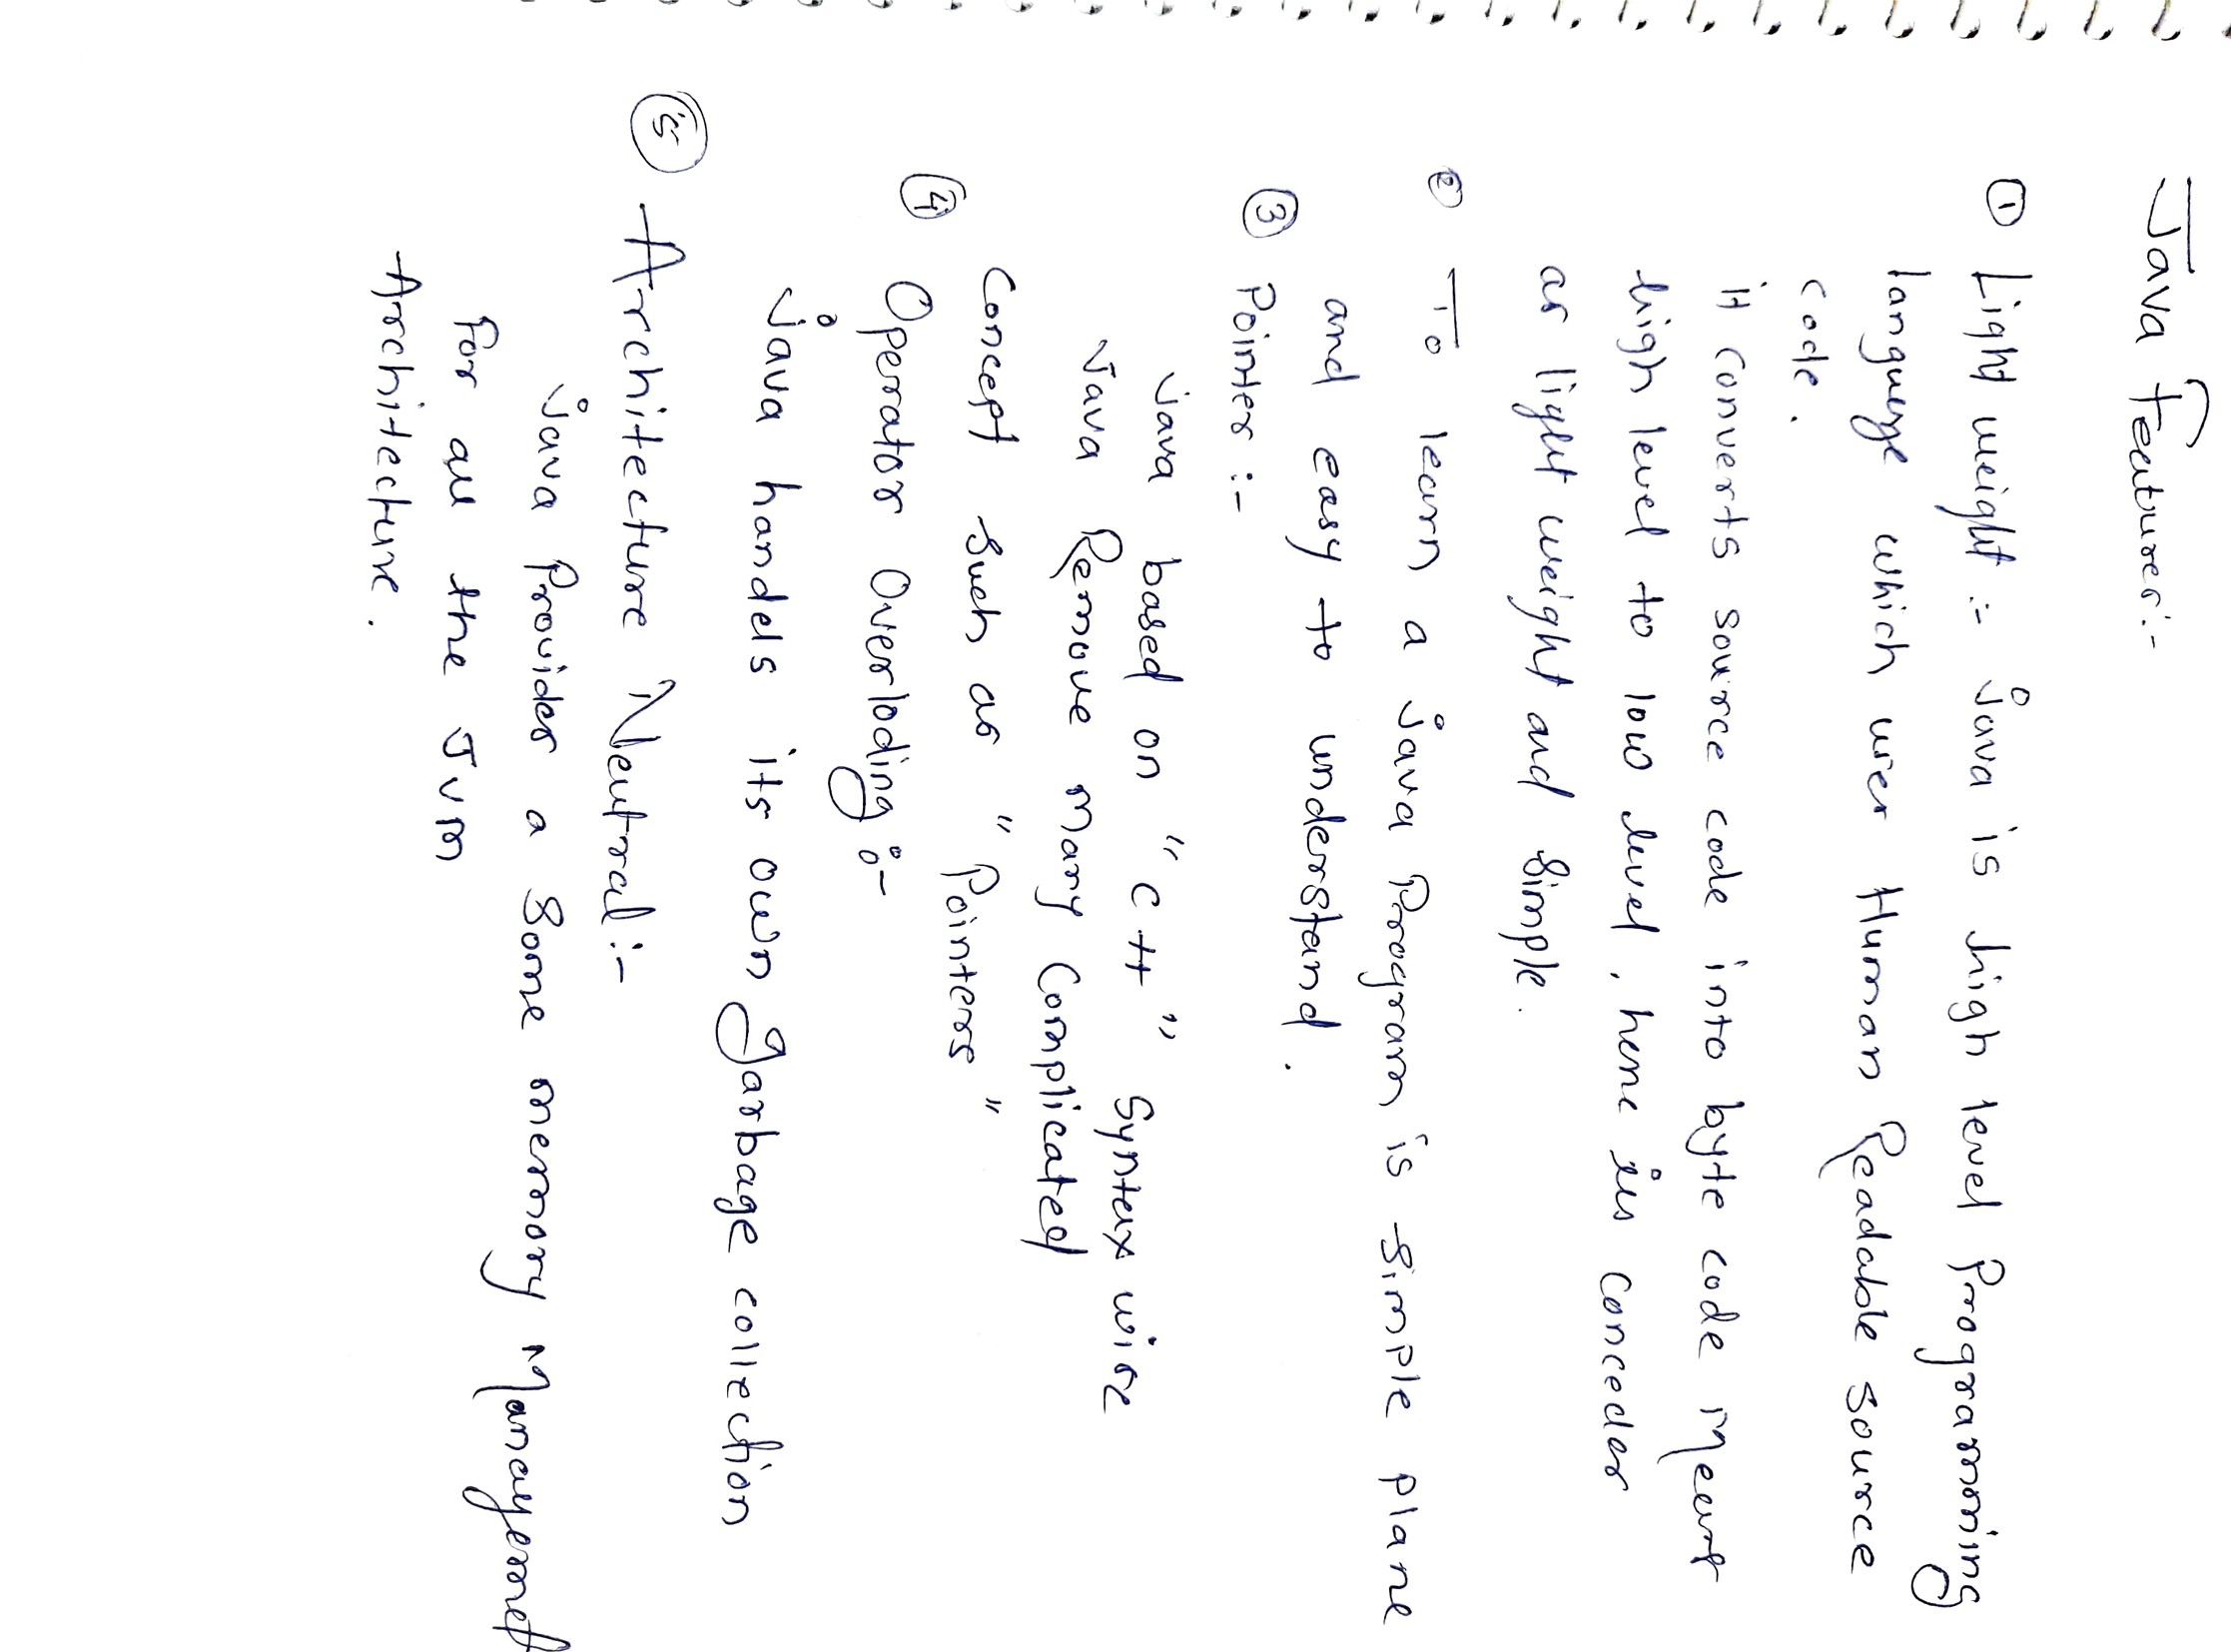 Java Features:-
① Light weight :- java is high level Programming
language which uses Human Readable source
code.
it converts source code into byte code Means
high level to low level, henc its conceder
as light weight and simple.
② To learn a java Program is simple plane
and easy to understand.
③ Pointer :-
java based on "C++" Syntax wise
Java Remove many Complicated
Concept such as "Pointers"
④ Operator Overloding :-
java handels its own garbage collection
⑤ Architecture Neutral :-
java Provides a Some memory Managemet
For all the JVM
Architecture.